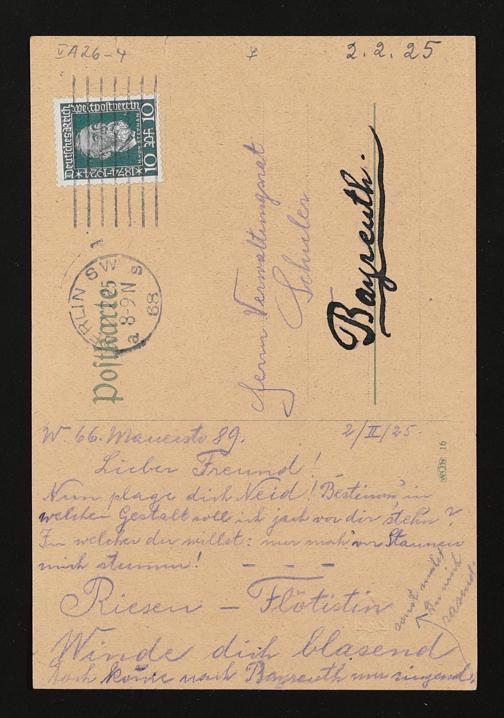 VA26-4
2.2.25
Deutsches Reich
Weltpostverein
1874*1924
10 Pf 10
BERLIN SW
8-9 N
68
Postkarte
Herrn Verwaltungsrat
Schuler
Bayreuth.
W. 66. Mauerstr 89.
2/II/25.
Lieber Freund!
Nun plage dich Neid! Bestimm, in
welcher Gestalt soll ich jach vor dir stehn?
In welcher du willst: nur mach' vor Staunen
mich stumm!
Riesen – Flötistin
Winde dich blasend
doch komme nach Bayreuth nur singend,
sonst machst
du mich
rasend
WOB 16